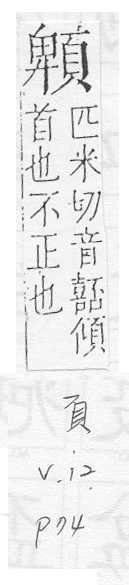 顊
匹米切音嚭傾
首也不正也
頁
V.12.
p74